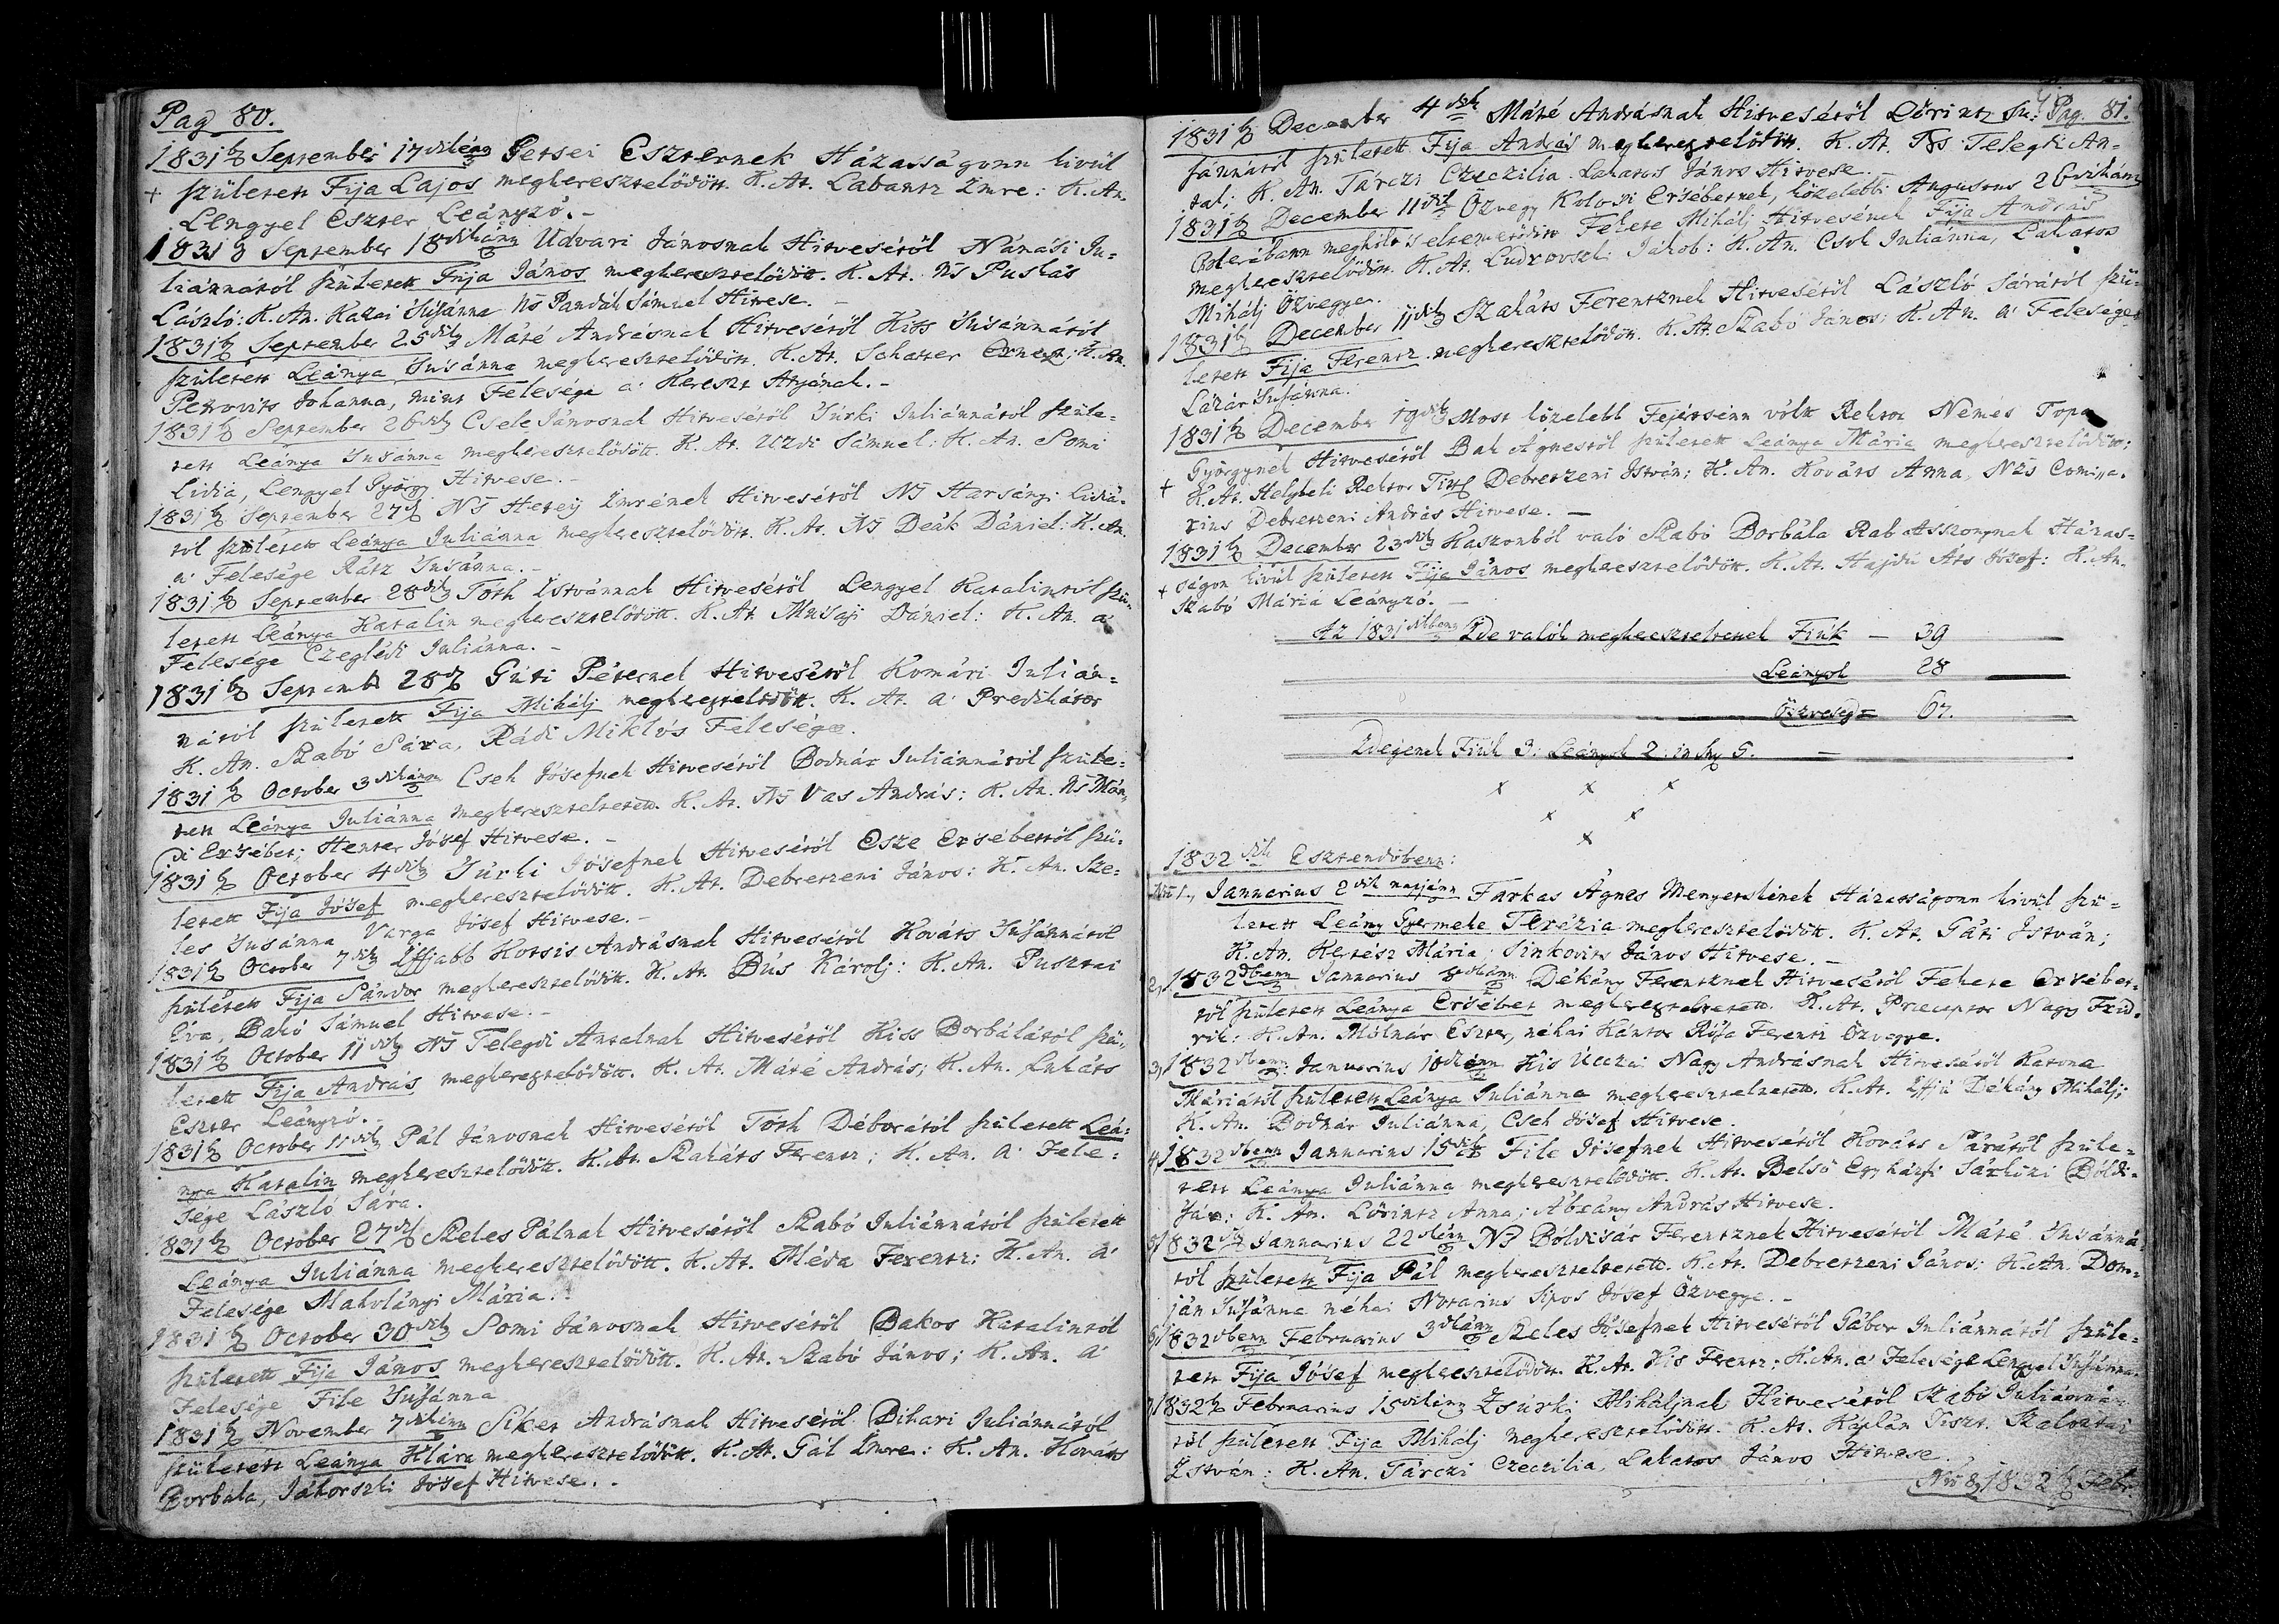 Pag 80.
1831b September 17dikénn Getsei Eszternek Házasságonn kivül
+ született Fija Lajos megkeresztelődött. K. At. Labantz Imre: K. An.
Lengyel Eszter Leányzó.-
1831b September 18dikánn Udvari Jánosnak Hitvesétöl Nánási Ju=
liánnától született Fija János megkeresztelődött. K. At. Ns Puskás
László: K. An. Kazai Susánna Ns Pandák Sámuel Hitvese. -
1831b September 25dik Máté Andrásnak Hitvesétöl Kiss Susánnától
született Leánya Susánna megkeresztelődött. K. At. Schatter Ernest: K. An.
Petrovits Johanna, mint Felesége a' Kereszt Atyának.-
1831b September 26dik Csele Jánosnak Hitvesétöl Túrki Juliánnától szüle=
tett Leánya Susánna megkeresztelődött. K. At. Uzdi Sámuel: K. An. Somi
Lidia, Lengyel György Hitvese.-
1831b September 27d Ns Hetey Imrének Hitvesétöl Ns Harsányi Lidiá=
tól született Leánya Juliánna megkeresztelődött. K. At. Ns Deák Dániel: K. An.
a' Felesége Rátz Susánna.-
1831b September 28dik Tóth Istvánnak Hitvesétöl Lengyel Katalintól szü=
letett Leánya Katalin megkeresztelődött. K. At. Dániel: K. An. a'
Felesége Czeglédi Juliánna.-
1831b Septemb 28d Gúti Péternek Hitvesétöl Komári Julián=
nától született Fija Mihálj megkeresztelődött. K. At. a' Predikátor
K. An. Szabó Sára, Rádi Miklós Felesége.
1831b October 3dikánn Cseh Jósefnek Hitvesétöl Bodnár Juliánnától szüle=
tett Leánya Juliánna megkereszteltetett. K. At. Ns Vas András: K. An. Ns Mán=
di Ersébet; Henter Jósef Hitvese.-
1831b October 4dik Túrki Jósefnek Hitvesétöl Esze Ersébettöl szü=
letett Fija Jósef megkeresztelődött. K. At. Debretzeni János: K. An. Sze=
les Susánna Varga Jósef Hitvese.-
1831b October 7dik Iffjabb Kotsis Andrásnak Hitvesétöl Kováts Susánnától
született Fija Sándor megkeresztelődött. K. At. Bús Károlj: K. An. Pusztai
Éva, Bakó Sámuel Hitvese.-
1831b October 11dik Ns Telegdi Antalnak Hitvesétöl Kiss Borbálától szü=
letett Fija András megkeresztelődött. K. At. Máté András; K. An. Lukáts
Eszter Leányzó.-
1831b October 11dik Pál Jánosnak Hitvesétöl Tóth Déborától született Leá=
nya Katalin megkeresztelődött. K. At. Szakáts Ferentz; K. An. a' Fele=
sége László Sára.
1831b October 27dik Szeles Pálnak Hitvesétöl Szabó Juliánnától született
Leánya Juliánna megkeresztelődött. K. At. Méda Ferentz: K. An. a'
Felesége Makolányi Mária.-
1831b October 30dik Somi Jánosnak Hitvesétöl Bakos Katalintól
született Fija János megkeresztelődött. K. At. Szabó János; K. An. a'
Felesége File Susánna
1831b November 7dikénn Siket Andrásnak Hitvesétöl Bihari Juliánnától
született Leánya Klára megkeresztelődött. K. At. Gál Imre: K. An. Kováts
Borbála, Jákorszki Jósef Hitvese.-
Pag. 81.
1831b December 4dik Máté Andrásnak Hitvesétöl Lőrintz Su=
sánnától született Fija András megkeresztelődött. K. At. Ns Telegdi An=
tal; K. An. Tárczi Czeczilia Lakatos János Hitvese.
1831b December 11dik Özvegy Kolosi Ersébetnek, közelebb Augustus 26dikánn
Cholerábann meghólt 's eltemetődött Fekete Mihálj Hitvesének Fija András
megkeresztelődött. K. At. Ludrovszki Jákob: K. An. Cseh Juliánna, Lakatos
Mihálj Özvegye.
1831b December 11dik Szakáts Ferentznek Hitvesétöl László Sárától szü=
letett Fija Ferentz megkeresztelődött. K. At. Szabó János; K. An. a' Felesége
Lázár Susánna.
1831b December 19dik Most közelebb Fejértsénn vólt Rektor Nemes Topa
Györgynek Hitvesétöl Bak Ágnestöl született Leánya Mária megkeresztelődött;
+ K. At. Helybeli Rektor Tiszt Debretzeni István; K. An. Kováts Anna, Nzs Comissa=
rius Debretzeni András Hitvese. -
1831b December 23dik Kaszonból való Szabó Borbála Rab Asszonynak Házas=
+ ságon kivül született Fija János megkeresztelődött. K. At. Hajdú Áts Jósef: K. An.
Szabó Máriá Leányzó. -
Az 1831dikbenn Ide valók megkereszteltettek Fiúk - 39
Leányok 28
Öszveség 67.
Idegenek Fiúk 3: Leányok 2: in Sum 5. -
x x x
x x
x
1832dik Esztendőbenn:
Nro 1., Januarius 2dik napjánn Farkas Ágnes Menyetskének Házasságonn kivül szü=
letett Leány Gyermeke Terézia megkeresztelődött. K. At. Gáti István;
K. An. Kertész Mária, Sinkovits János Hitvese.-
2, 1832dbenn Januarius 8dikánn Dékány Ferentznek Hitvesétöl Fekete Ersébet=
töl született Leánya Ersébet megkereszteltetett. K. At. Preceptor Nagy Frid=
rik: K. An. Mólnár Eszter, néhai Kántor Rósa Ferentz Özvegye.
3, 1832dbenn Januarius 10dikénn Kis Úczai Nagy Andrásnak Hitvesétöl Katona
Máriától született Leánya Juliánna megkereszteltetett. K. At. Iffjú Dékány Mihálj;
K. An. Bodnár Juliánna, Cseh Jósef Hitvese.
4, 1832dbenn Januarius 15dik File Jósefnek Hitvesétöl Kováts Sárától szüle=
tett Leánya Juliánna megkeresztelődött. K. At. Belső Egyházfi Sárközi Bóldi=
sár: K. An. Lőrintz Anna; Ábrány András Hitvese.
5, 1832dik Januarius 22dikénn Ns Bóldisár Ferentznek Hitvesétöl Máté Susánná=
tól született Fija Pál megkereszteltetett. K. At. Debretzeni János: K. An. Dom=
ján Susánna néhai Notarius Sipos Jósef Özvegye.-
6, 1832dbenn Februarius 3dikánn Szeles Jósefnek Hitvesétöl Gábor Juliánnától szüle=
tett Fija Jósef megkeresztelődött. K. At. Kis Ferentz; K. An. a' Felesége Lengyel Susánna.
7, 1832b Februarius 15dikénn Zsúrki Miháljnak Hitvesétöl Szabó Juliánná=
tól született Fija Mihálj megkeresztelődött. K. At. Káplán Tiszt. Szalontai
István: K. An. Tárczi Czeczilia, Lakatos János Hitvese.
Nro 8, 1832b Febr.